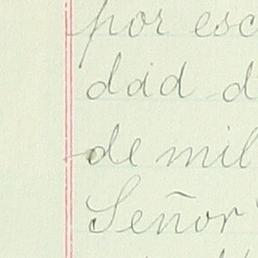 por esc
dad d
de mil
Señor